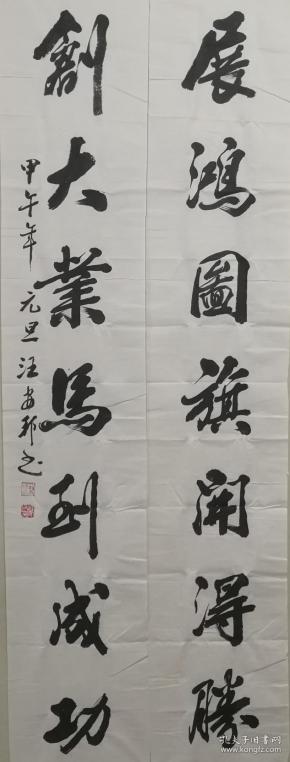 展鴻圖旗開得勝
創大業馬到成功
甲午年 元旦 汪安邦书
孔夫子旧书网